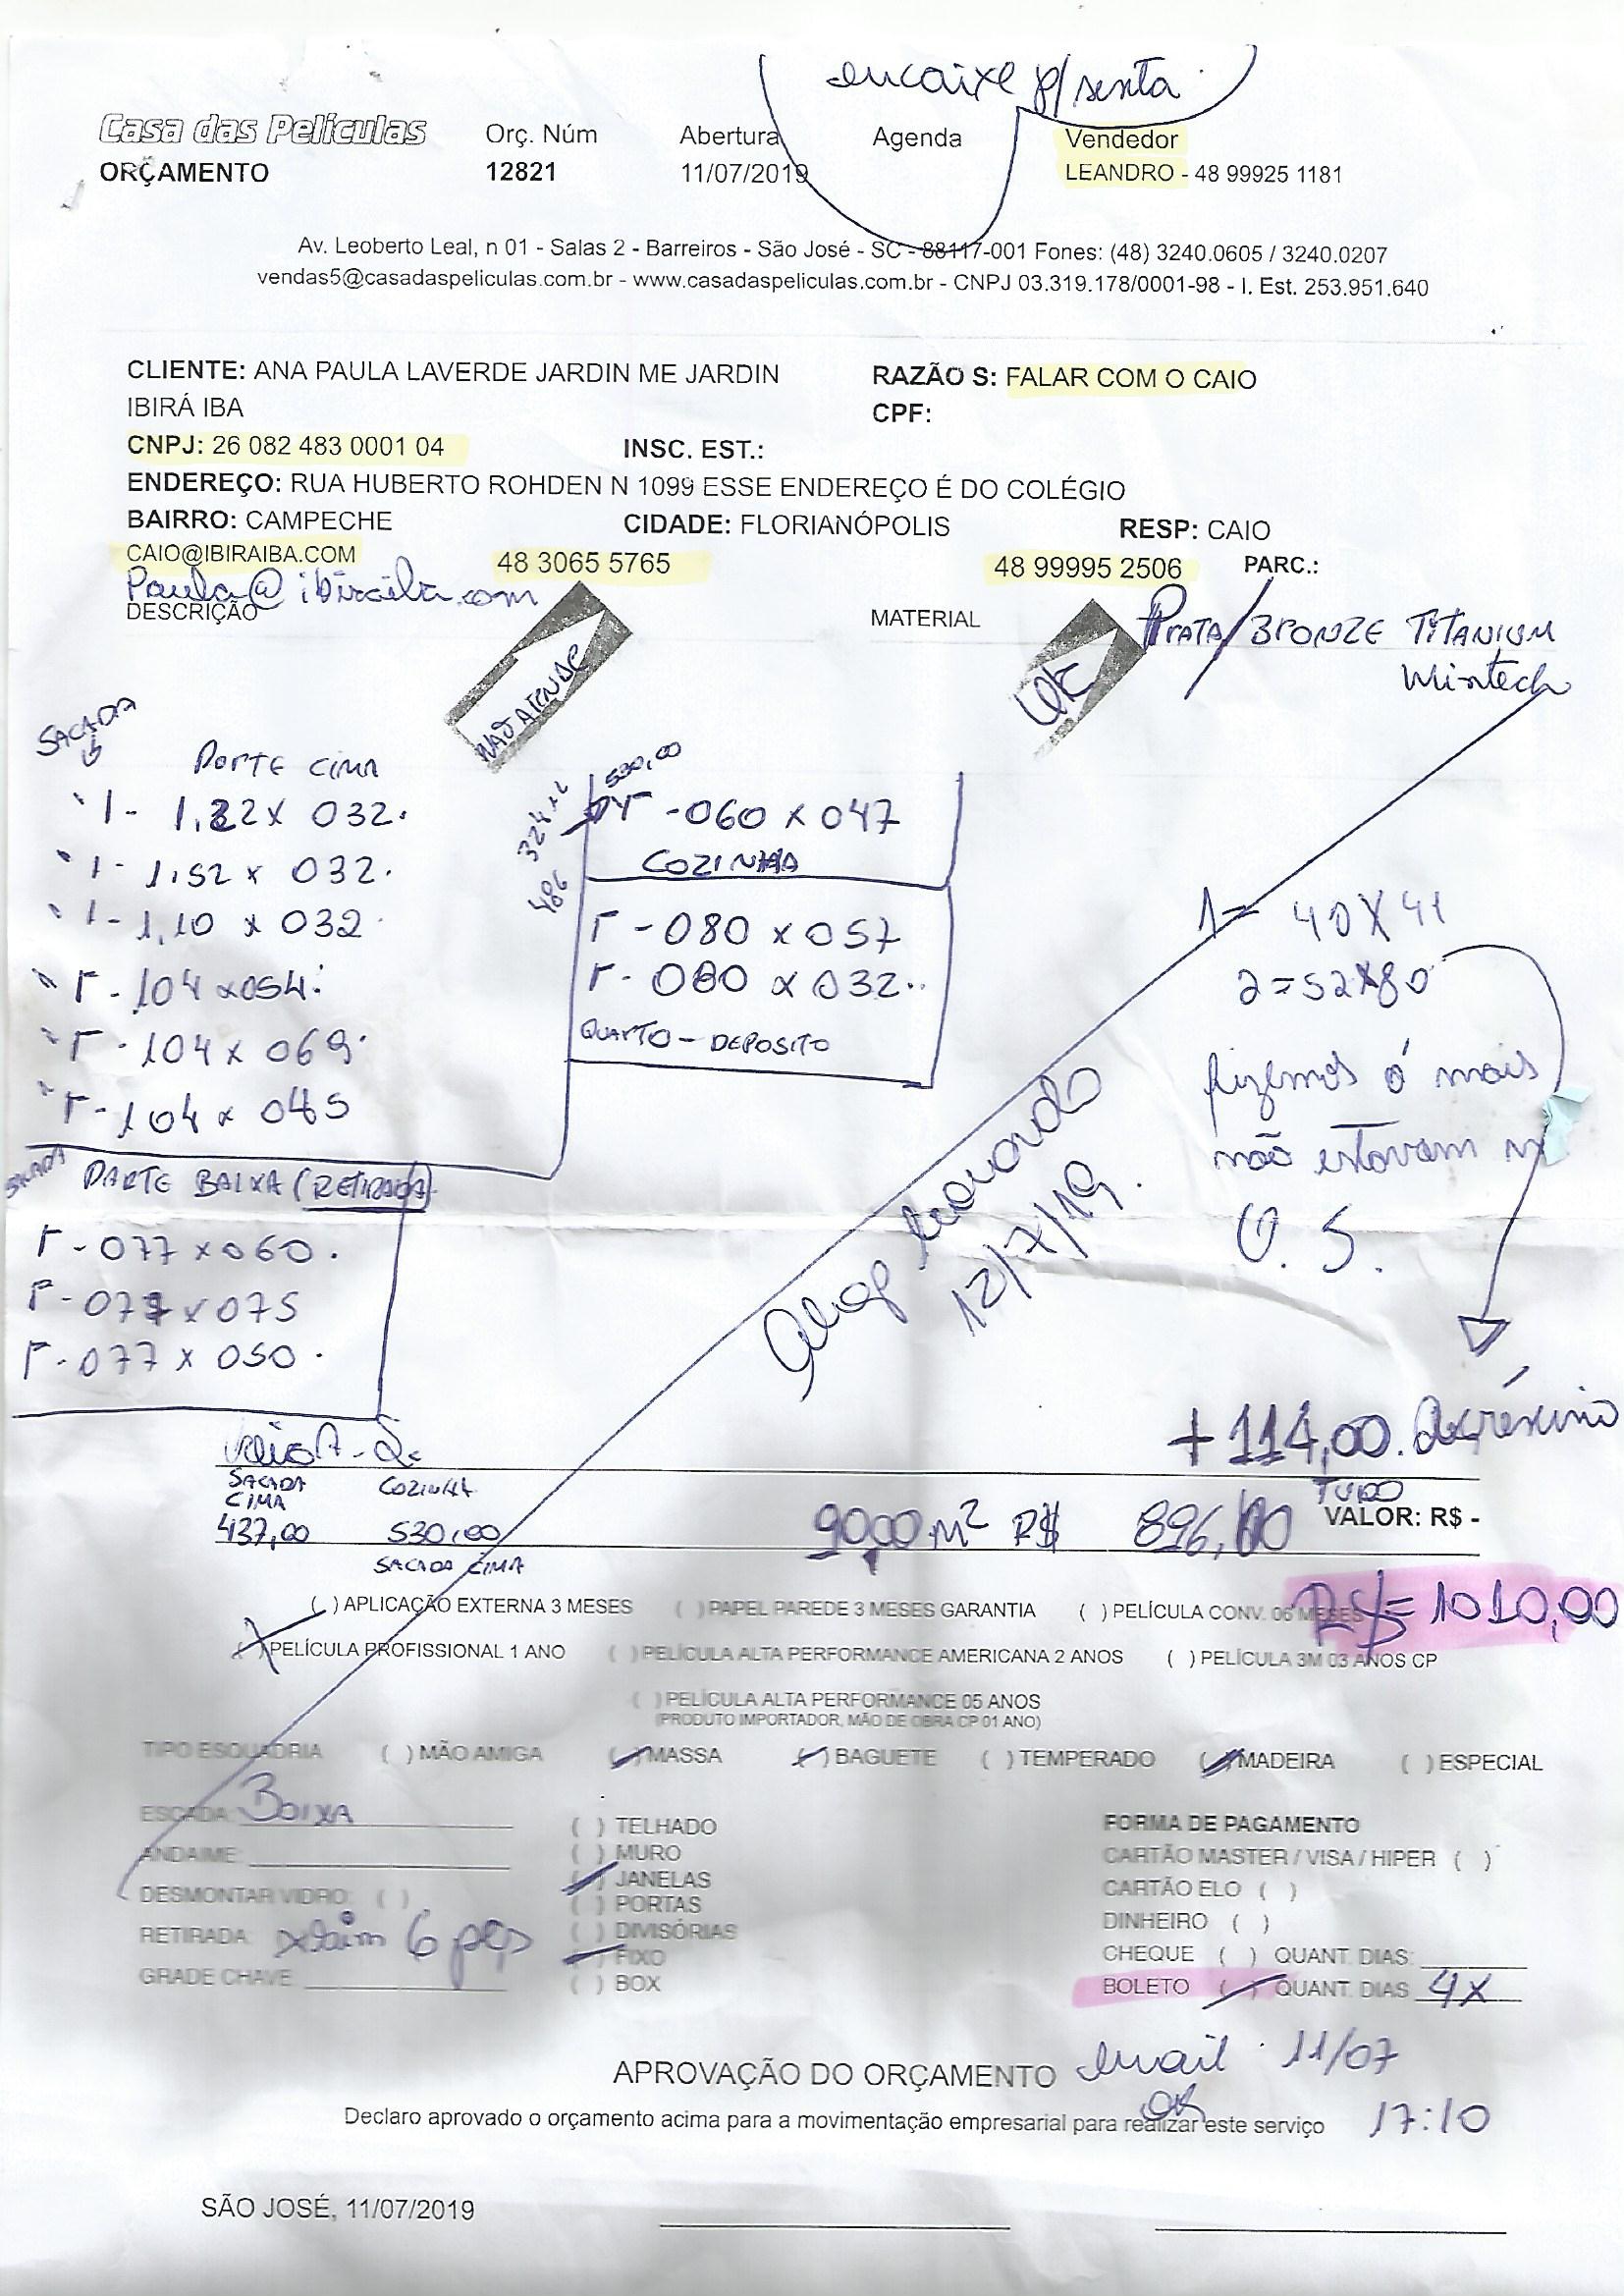 encaixe p/ sexta
Casa das Películas Orç. Núm Abertura Agenda Vendedor
ORÇAMENTO 12821 11/07/2019 LEANDRO - 48 99925 1181
Av. Leoberto Leal, n 01 - Salas 2 - Barreiros - São José - SC - 88117-001 Fones: (48) 3240.0605 / 3240.0207
vendas5@casadaspeliculas.com.br - www.casadaspeliculas.com.br - CNPJ 03.319.178/0001-98 - I. Est. 253.951.640
CLIENTE: ANA PAULA LAVERDE JARDIN ME JARDIN RAZÃO S: FALAR COM O CAIO
IBIRÁ IBA CPF:
CNPJ: 26 082 483 0001 04 INSC. EST.:
ENDEREÇO: RUA HUBERTO ROHDEN N 1099 ESSE ENDEREÇO É DO COLÉGIO
BAIRRO: CAMPECHE CIDADE: FLORIANÓPOLIS RESP: CAIO
CAIO@IBIRAIBA.COM 48 3065 5765 48 99995 2506 PARC.:
Paula@ibiraiba.com
DESCRIÇÃO MATERIAL PRATA/BRONZE TITANIUM
Wintech
NÃO ATENDE
SACADA
PARTE CIMA
1- 1,22 x 032.
1- 1,52 x 032.
1- 1,10 x 032
1- 104 x 054
1- 104 x 069
1- 104 x 045
530,00
324 x 2
486
1 - 060 x 047
COZINHA
1 - 080 x 057
1 - 080 x 032
QUARTO - DEPOSITO
1= 40 X 41
2 = 52 X 80
fizemos ó mais
não estavam n
O. S.
SACADA PARTE BAIXA (RETIRADA)
1- 077 x 060.
1- 077 x 075
1- 077 x 050.
12/7/19.
+ 114,00. Acréscimo
SACADA CIMA COZINHA
437,00 530,00
SACADA CIMA
90,00 m² R$ 896,00 TUDO VALOR: R$ -
R$ = 1010,00
( ) APLICAÇÃO EXTERNA 3 MESES ( ) PAPEL PAREDE 3 MESES GARANTIA ( ) PELÍCULA CONV. 06 MESES
(X) PELÍCULA PROFISSIONAL 1 ANO ( ) PELÍCULA ALTA PERFORMANCE AMERICANA 2 ANOS ( ) PELÍCULA 3M 03 ANOS CP
( ) PELÍCULA ALTA PERFORMANCE 05 ANOS
(PRODUTO IMPORTADOR, MÃO DE OBRA CP 01 ANO)
TIPO ESQUADRIA ( ) MÃO AMIGA (✓) MASSA (✓) BAGUETE ( ) TEMPERADO (✓) MADEIRA ( ) ESPECIAL
ESCADA: BAIXA
ANDAIME:
DESMONTAR VIDRO: ( )
RETIRADA: sim 6 pçs
GRADE CHAVE:
( ) TELHADO
( ) MURO
(✓) JANELAS
( ) PORTAS
( ) DIVISÓRIAS
(✓) FIXO
( ) BOX
FORMA DE PAGAMENTO
CARTÃO MASTER / VISA / HIPER ( )
CARTÃO ELO ( )
DINHEIRO ( )
CHEQUE ( ) QUANT. DIAS:
BOLETO (✓) QUANT. DIAS 4X
APROVAÇÃO DO ORÇAMENTO email 11/07
OK
Declaro aprovado o orçamento acima para a movimentação empresarial para realizar este serviço 17:10
SÃO JOSÉ, 11/07/2019